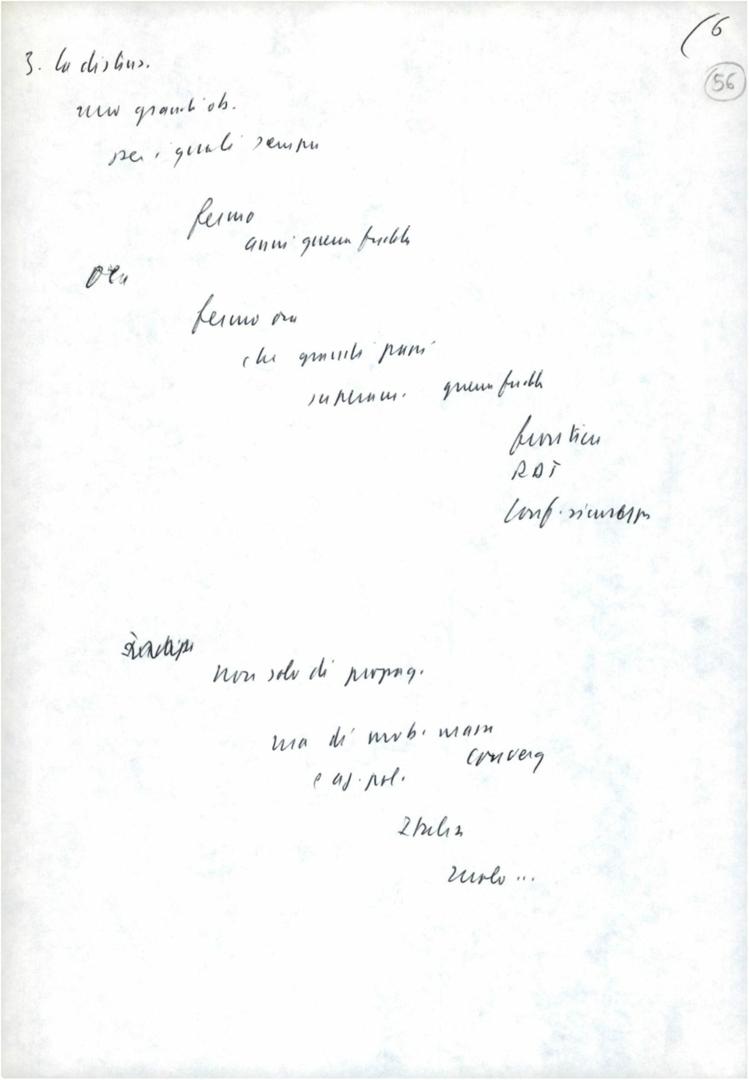 (6
56
3. la distens.
uno grandi ob.
per i quali sempre
fermo
anni guerra fredda
Ora
fermo ora
che grandi passi
superam. guerra fredda
frontiere
RDT
Conf. sicurezza
non solo di propag.
ma di mob. massa
converg
e az. pol.
Italia
ruolo ...